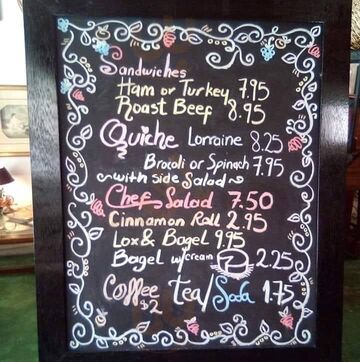 Sandwiches
Ham or Turkey 7.95
Roast Beef 8.95
Quiche Lorraine 8.25
Brocoli or Spinach 7.95
~with side Salad~
Chef Salad 7.50
Cinnamon Roll 2.95
Lox & Bagel 9.95
Bagel w/cream 2.25
Coffee $2 Tea/Soda 1.75